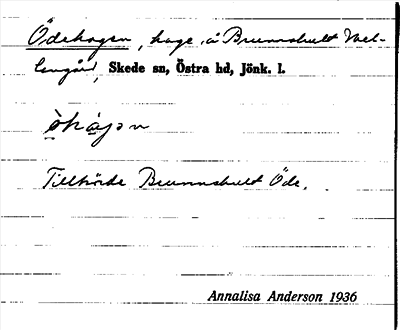 Ödehagen, hage å Brunnshult Mel-
lengård, Skede sn, Östra hd, Jönk. l.
Tillhörde Brunnshult Öde.
Annalisa Anderson 1936